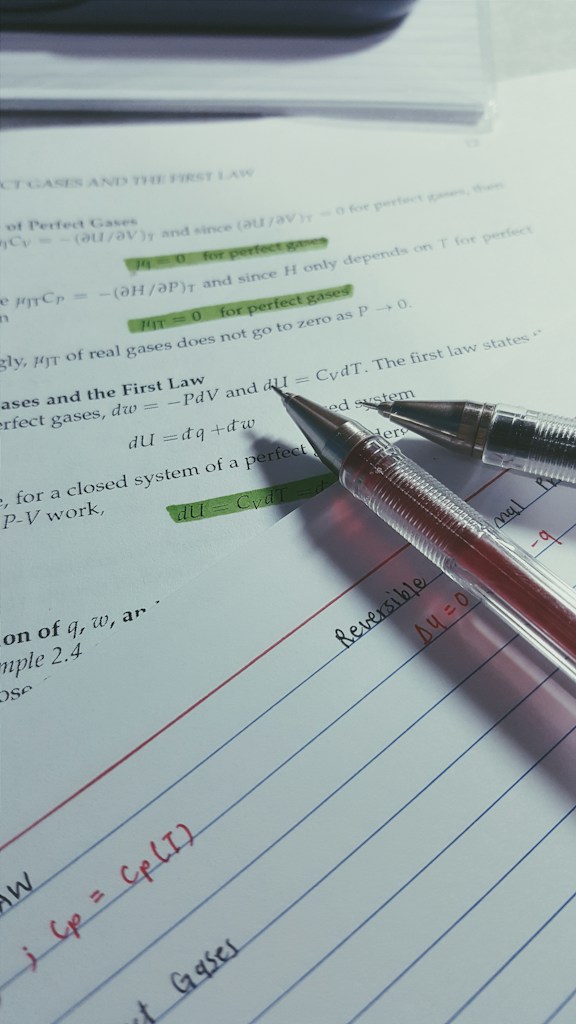 CT GASES AND THE FIRST LAW
of Perfect Gases
JCV = −(∂U/∂V)T and since (∂U/∂V)T = 0 for perfect gases, then
μJ = 0 for perfect gases
μJTCP = −(∂H/∂P)T and since H only depends on T for perfect
μJT = 0 for perfect gases
gly, μJT of real gases does not go to zero as P → 0.
ases and the First Law
erfect gases, đw = −PdV and dU = CVdT. The first law states
ed system
dU = đq + đw
, for a closed system of a perfect
P-V work,
dU = CVdT = đ
on of q, w, an
mple 2.4
ose
Reversible
ΔU = 0
-q
AW
; Cp = Cp(T)
ct Gases